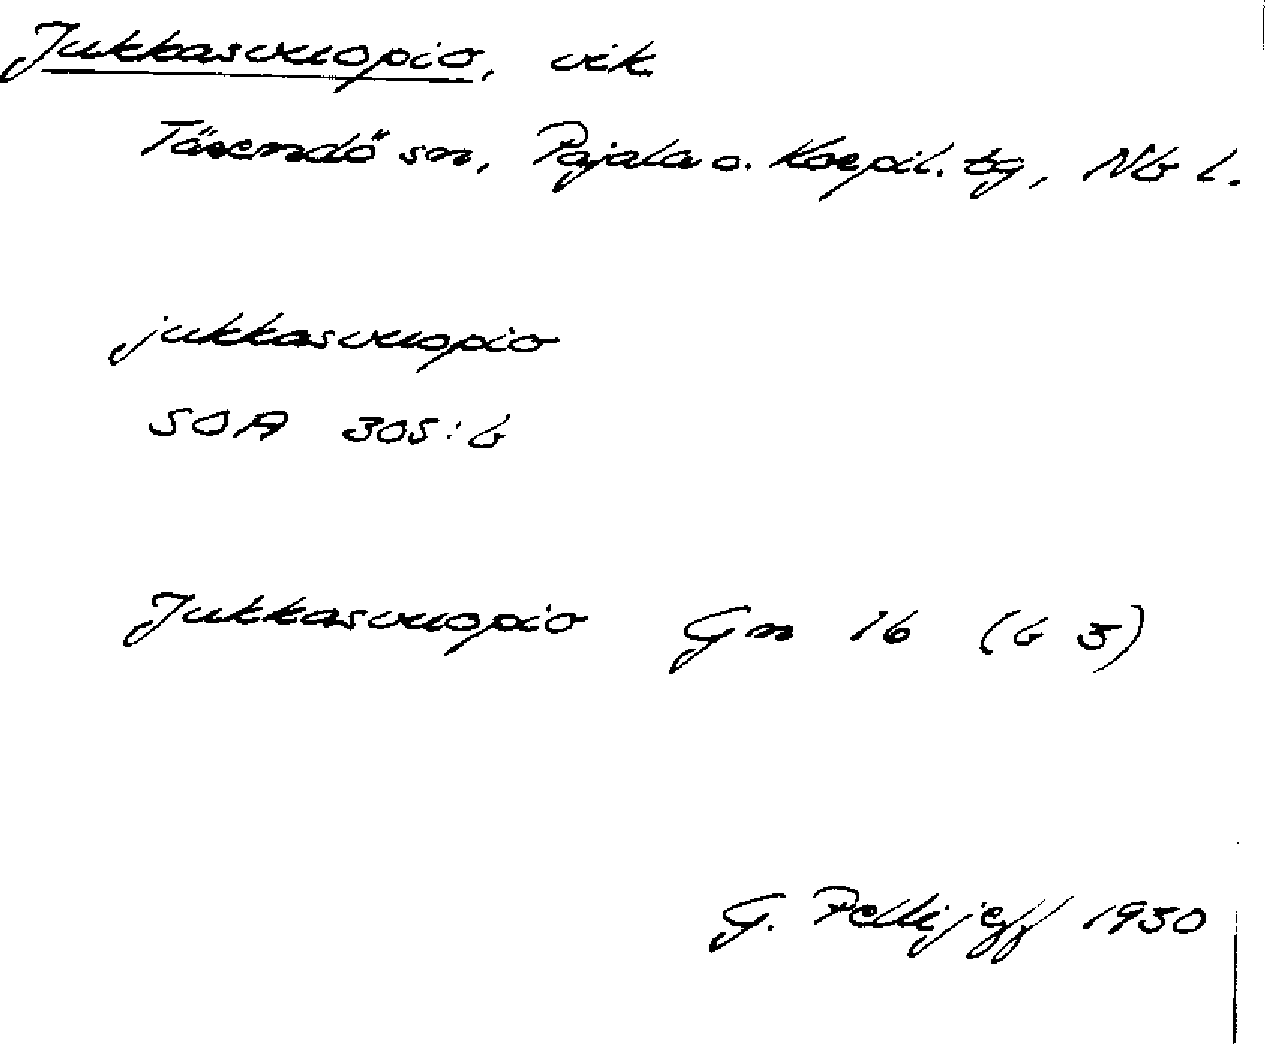 Jukkasvuopio, vik
Tärendö sn, Pajala o. Korpil. tg, Nb l.
jukkasvuopio
SOA 305:6
Jukkasvuopio Gn 16 (b 5)
G. Pellijeff 1950